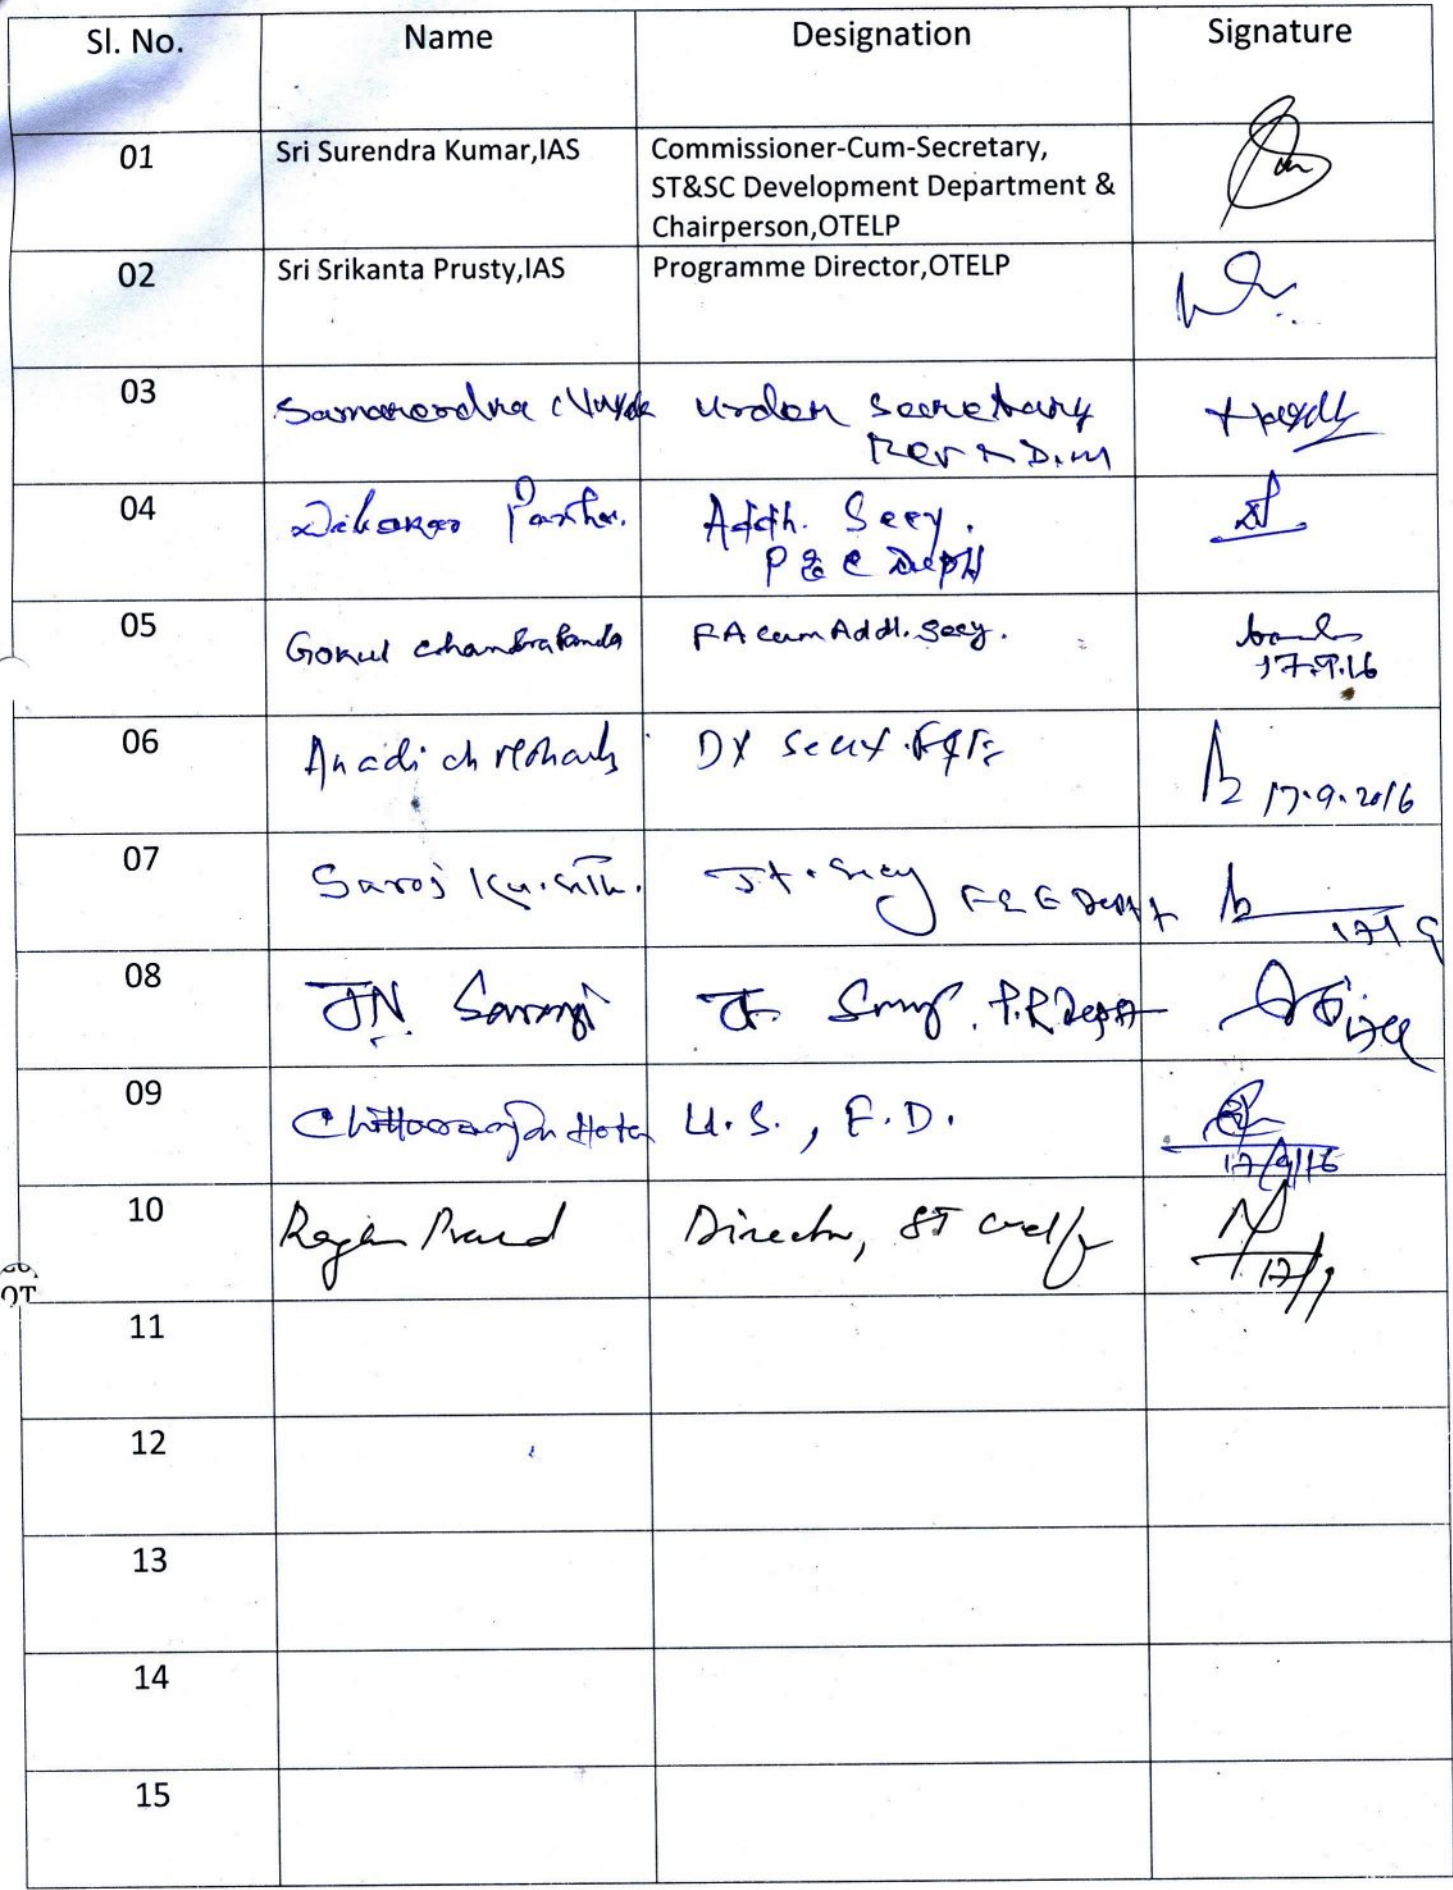 Sl. No. Name Designation Signature
01 Sri Surendra Kumar,IAS Commissioner-Cum-Secretary,
ST&SC Development Department &
Chairperson,OTELP
02 Sri Srikanta Prusty,IAS Programme Director,OTELP
03 Samarendra Nayak Under Secretary
Rev & D.M
04 Dibakar Parhi. Addl. Secy.
P & C Deptt
05 Gokul Chandra Panda FA cum Addl. Secy.
17.9.16
06 Anadi ch Mohanty Dy Secy.
17.9.2016
07 Saroj Ku. Jt. Secy F & E Deptt
17/9
08 J.N. Sarangi Jt. Secy. P.R Deptt
17/9
09 Chittaranjan Hota U.S., F.D.
17/9/16
10 Director, ST
17/9
OT
11
12
13
14
15